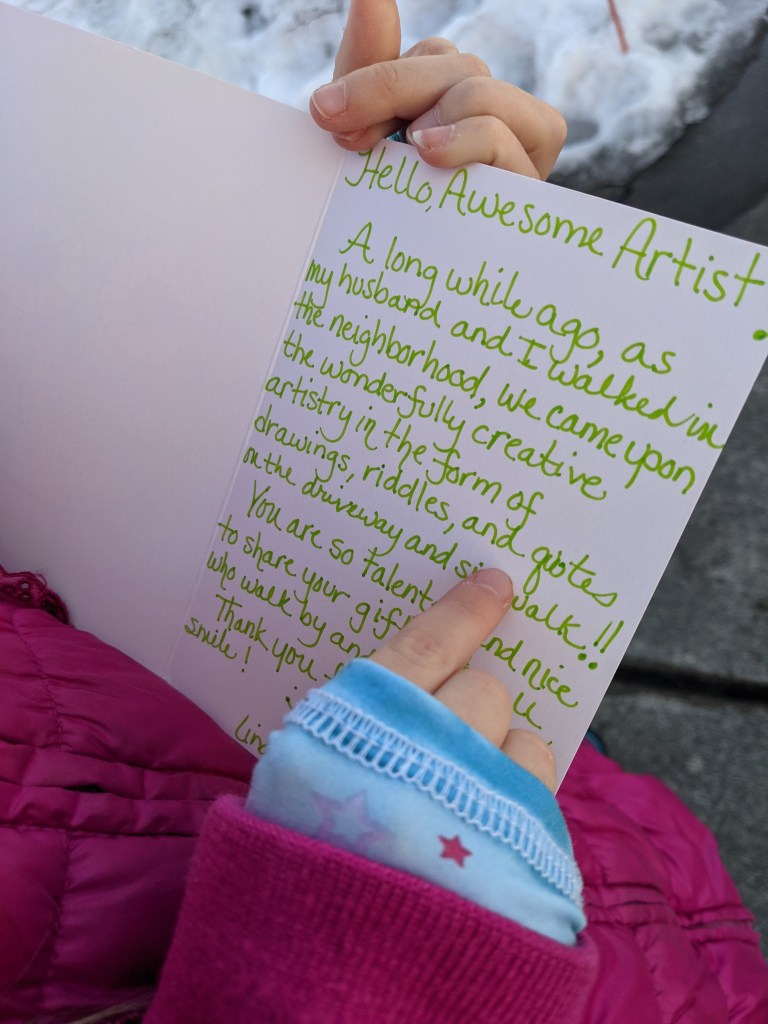 Hello, Awesome Artist.
A long while ago, as
my husband and I walked in
the neighborhood, we came upon
the wonderfully creative
artistry in the form of
drawings, riddles, and quotes
on the driveway and sidewalk.!!
You are so
to share your and nice
who walk by and
Thank you
smile!